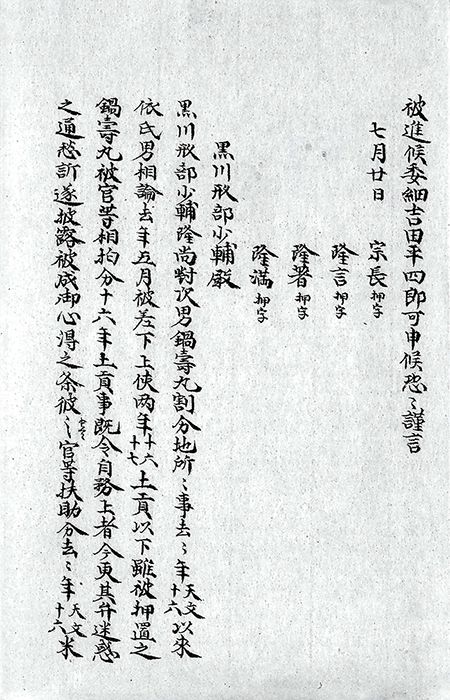 被進候委細吉田平四郎可申候恐々謹言
七月廿日　宗長押字
隆言押字
隆著押字
隆満押字
黒川刑部少輔殿
黒川刑部少輔隆尚對次男鍋壽丸割分地所々事去々年天文十六以来
依氏男相論去年五月被差下上使两年十六十七土貢以下雖被押置之
鍋壽丸被官等相拘分十六年土貢事既令自務上者今更其弁迷惑
之通愁訴遂披露被成御心得之条彼々官等扶助分去々年天文十六米